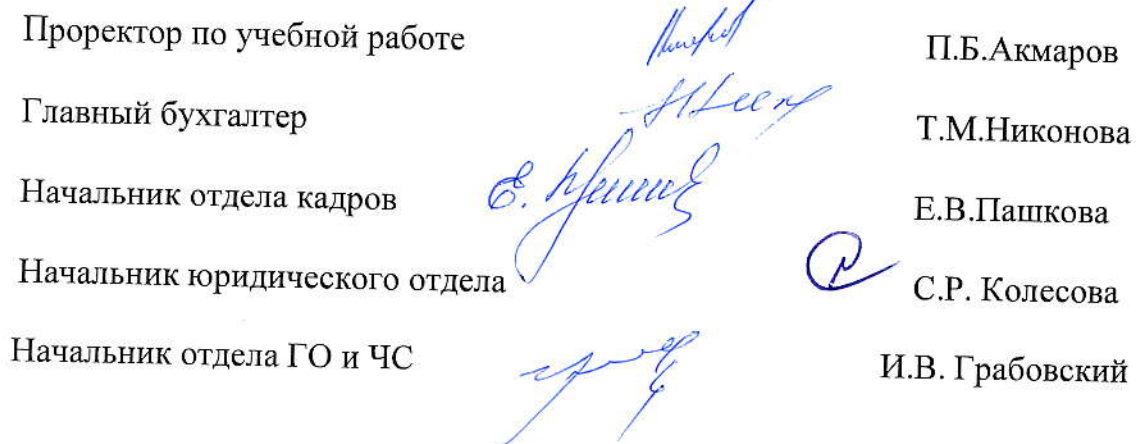 Проректор по учебной работе П.Б.Акмаров
Главный бухгалтер Т.М.Никонова
Начальник отдела кадров Е.В.Пашкова
Начальник юридического отдела С.Р. Колесова
Начальник отдела ГО и ЧС И.В. Грабовский